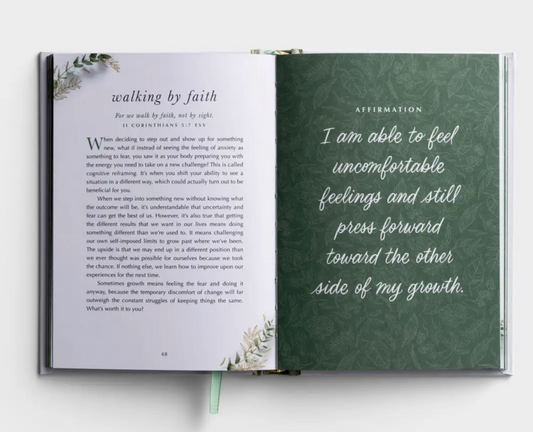 walking by faith
For we walk by faith, not by sight.
II CORINTHIANS 5:7 ESV
When deciding to step out and show up for something
new, what if instead of seeing the feeling of anxiety as
something to fear, you saw it as your body preparing you with
the energy you need to take on a new challenge? This is called
cognitive reframing. It's when you shift your ability to see a
situation in a different way, which could actually turn out to be
beneficial for you.
When we step into something new without knowing what
the outcome will be, it's understandable that uncertainty and
fear can get the best of us. However, it's also true that getting
the different results that we want in our lives means doing
something different than we're used to. It means challenging
our own self-imposed limits to grow past where we've been.
The upside is that we may end up in a different position than
we ever thought was possible for ourselves because we took
the chance. If nothing else, we learn how to improve upon our
experiences for the next time.
Sometimes growth means feeling the fear and doing it
anyway, because the temporary discomfort of change will far
outweigh the constant struggles of keeping things the same.
What's worth it to you?
68
AFFIRMATION
I am able to feel
uncomfortable
feelings and still
press forward
toward the other
side of my growth.